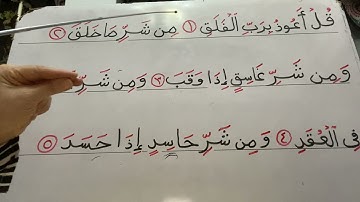 قُلْ أَعُوذُ بِرَبِّ الْفَلَقِ ١ مِن شَرِّ مَا خَلَقَ ٢
وَمِن شَرِّ غَاسِقٍ إِذَا وَقَبَ ٣ وَمِن شَرِّ
فِي الْعُقَدِ ٤ وَمِن شَرِّ حَاسِدٍ إِذَا حَسَدَ ٥